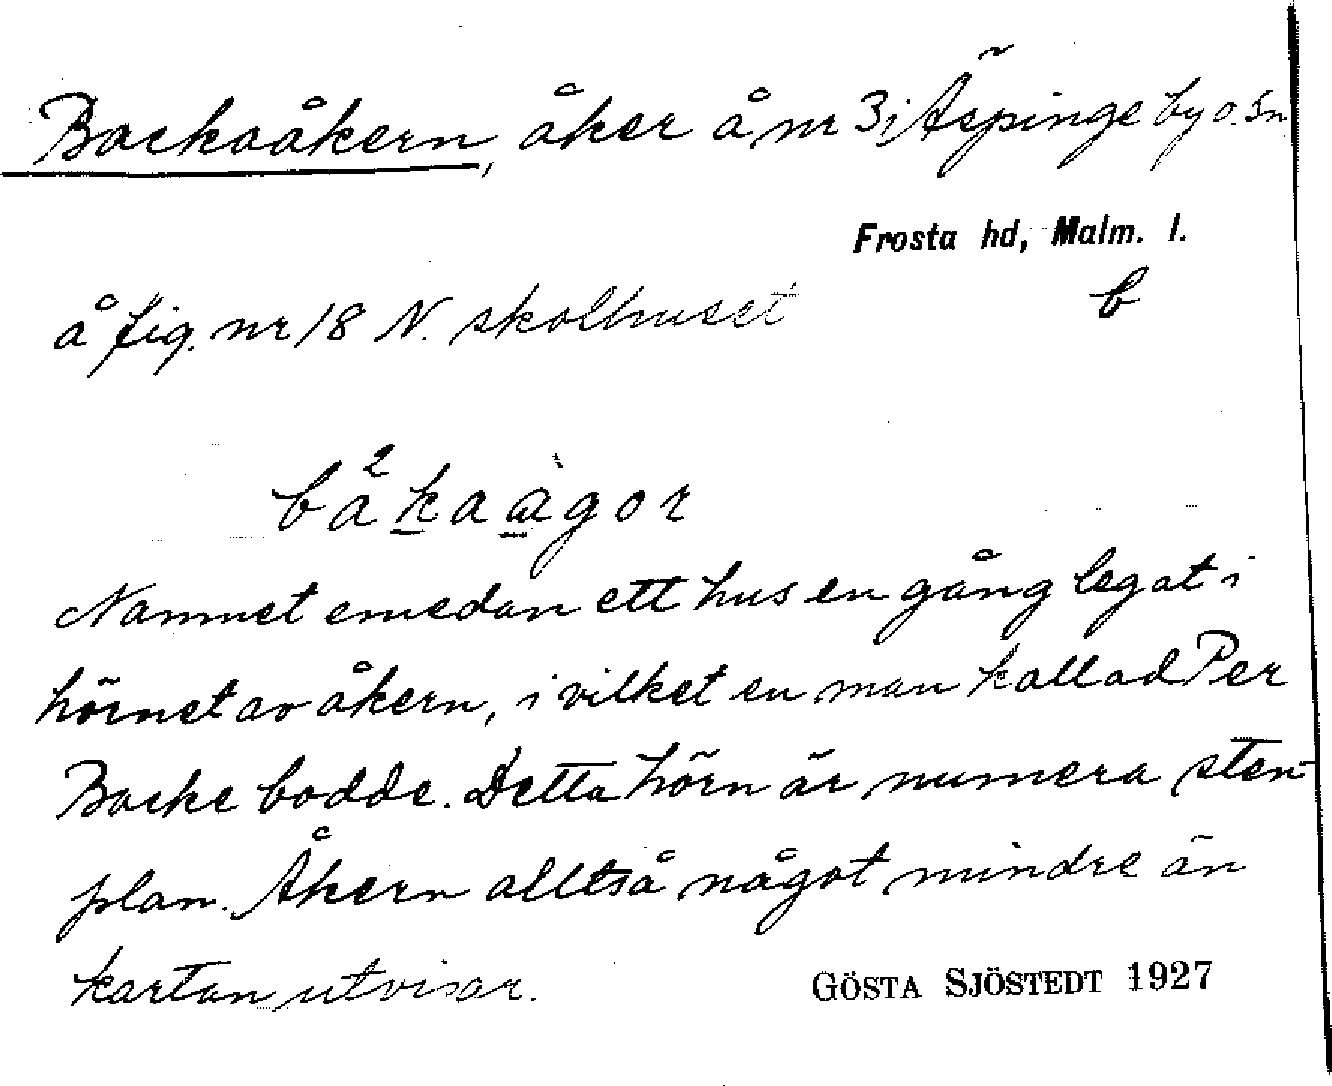 Backaåkern, åker å nr 3 i Äspinge by o. sn
Frosta hd, Malm. l.
å fig. nr 18 N. skolhuset b
bå²kaàgor
Namnet emedan ett hus en gång legat i
hörnet av åkern, i vilket en man kallad Per
Backe bodde. Detta hörn är numera sten-
plan. Åkern alltså något mindre än
kartan utvisar.
GÖSTA SJÖSTEDT 1927